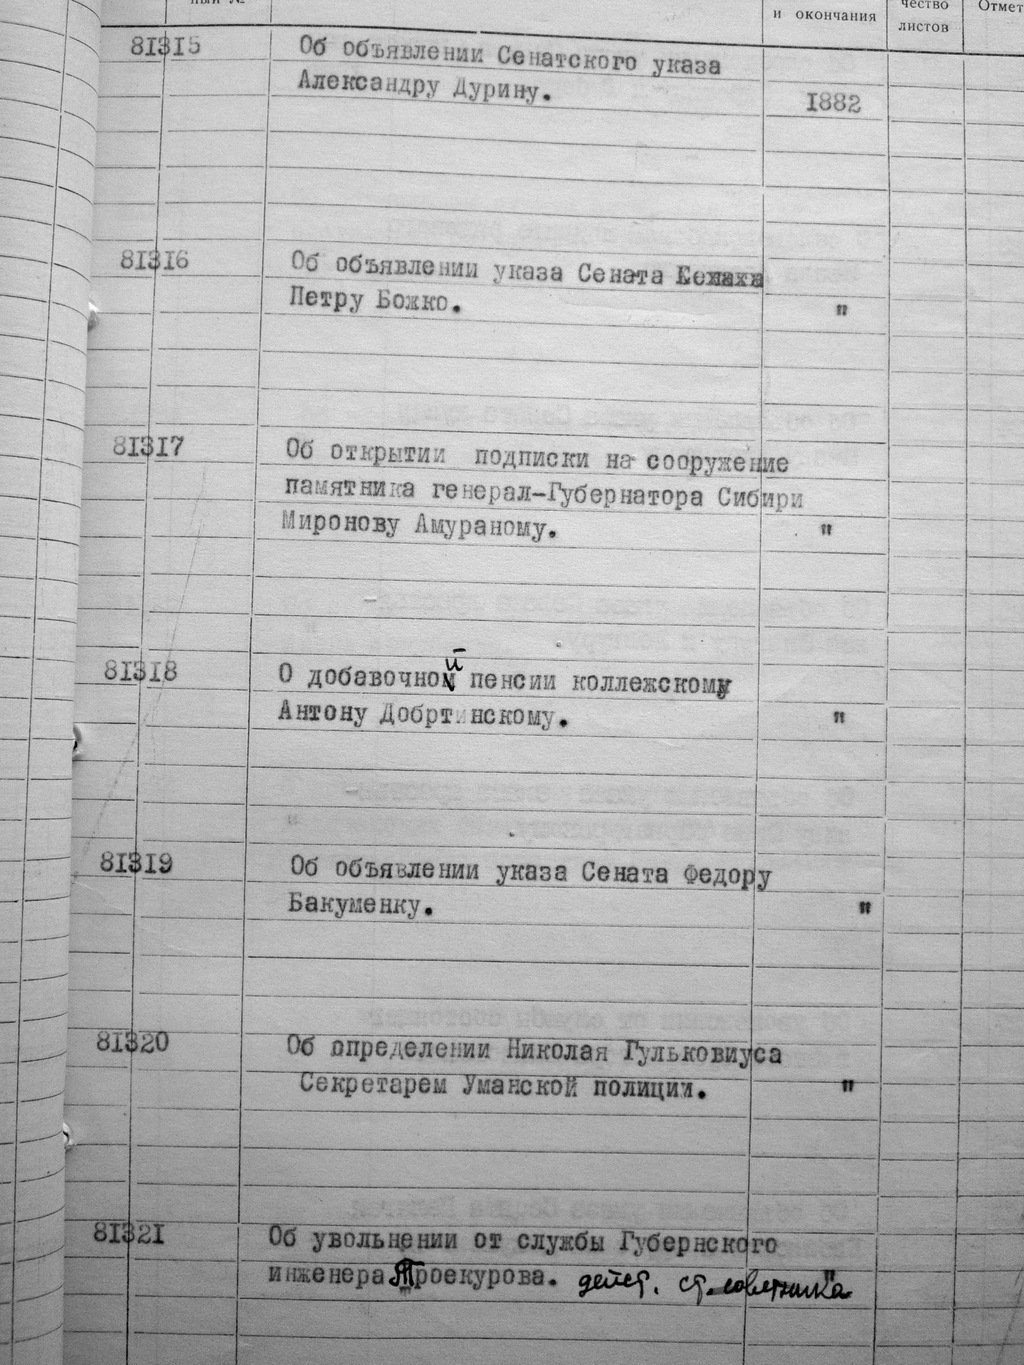 ный №
и окончания
чество
листов
Отмет
81315
Об объявлении Сенатского указа
Александру Дурину.
1882
81316
Об объявлении указа Сената
Петру Божко.
"
81317
Об открытии подписки на сооружение
памятника генерал-Губернатора Сибири
Миронову Амураному.
"
81318
О добавочной пенсии коллежскому
Антону Добртинскому.
"
81319
Об объявлении указа Сената Федору
Бакуменку.
"
81320
Об определении Николая Гульковиуса
Секретарем Уманской полиции.
"
81321
Об увольнении от службы Губернского
инженера Троекурова. дейст. ст. советника
"